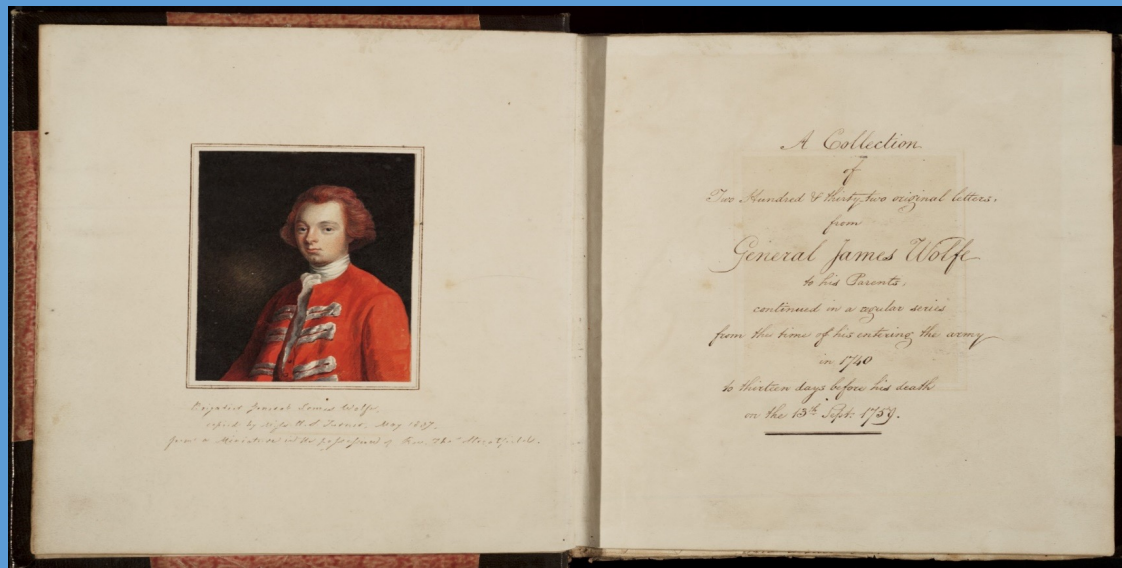 Brigadier General James Wolfe.
copied by Miss H. S. Turner, May 1827.
from a Miniature in the possession of Rev. Thos
A Collection
of
Two Hundred & thirty two original letters.
from
General James Wolfe
to his Parents,
continued in a regular series
from the time of his entering the army
in 1740
to thirteen days before his death
on the 13th Sept. 1759.